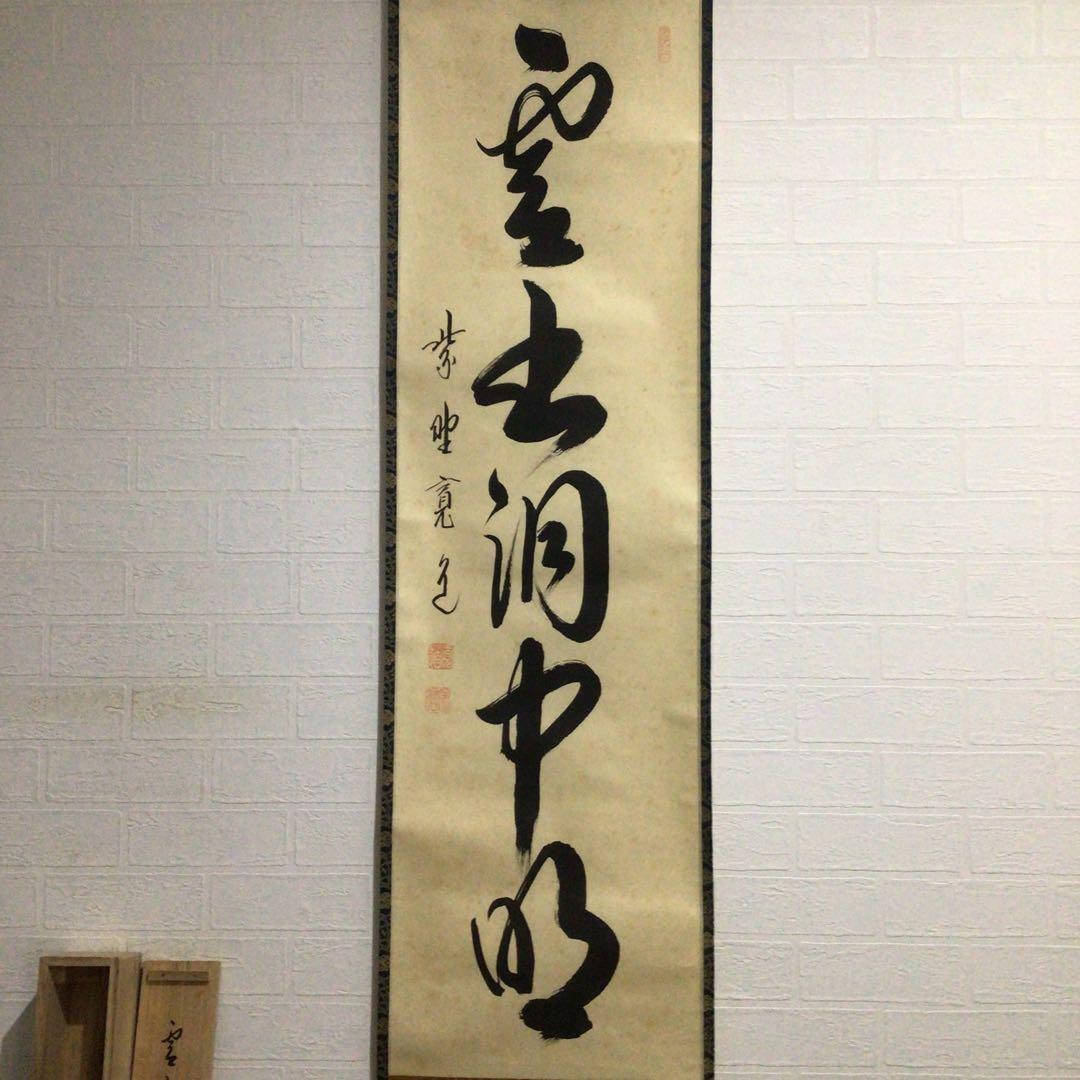 雲出洞中明
紫野寛道
雲